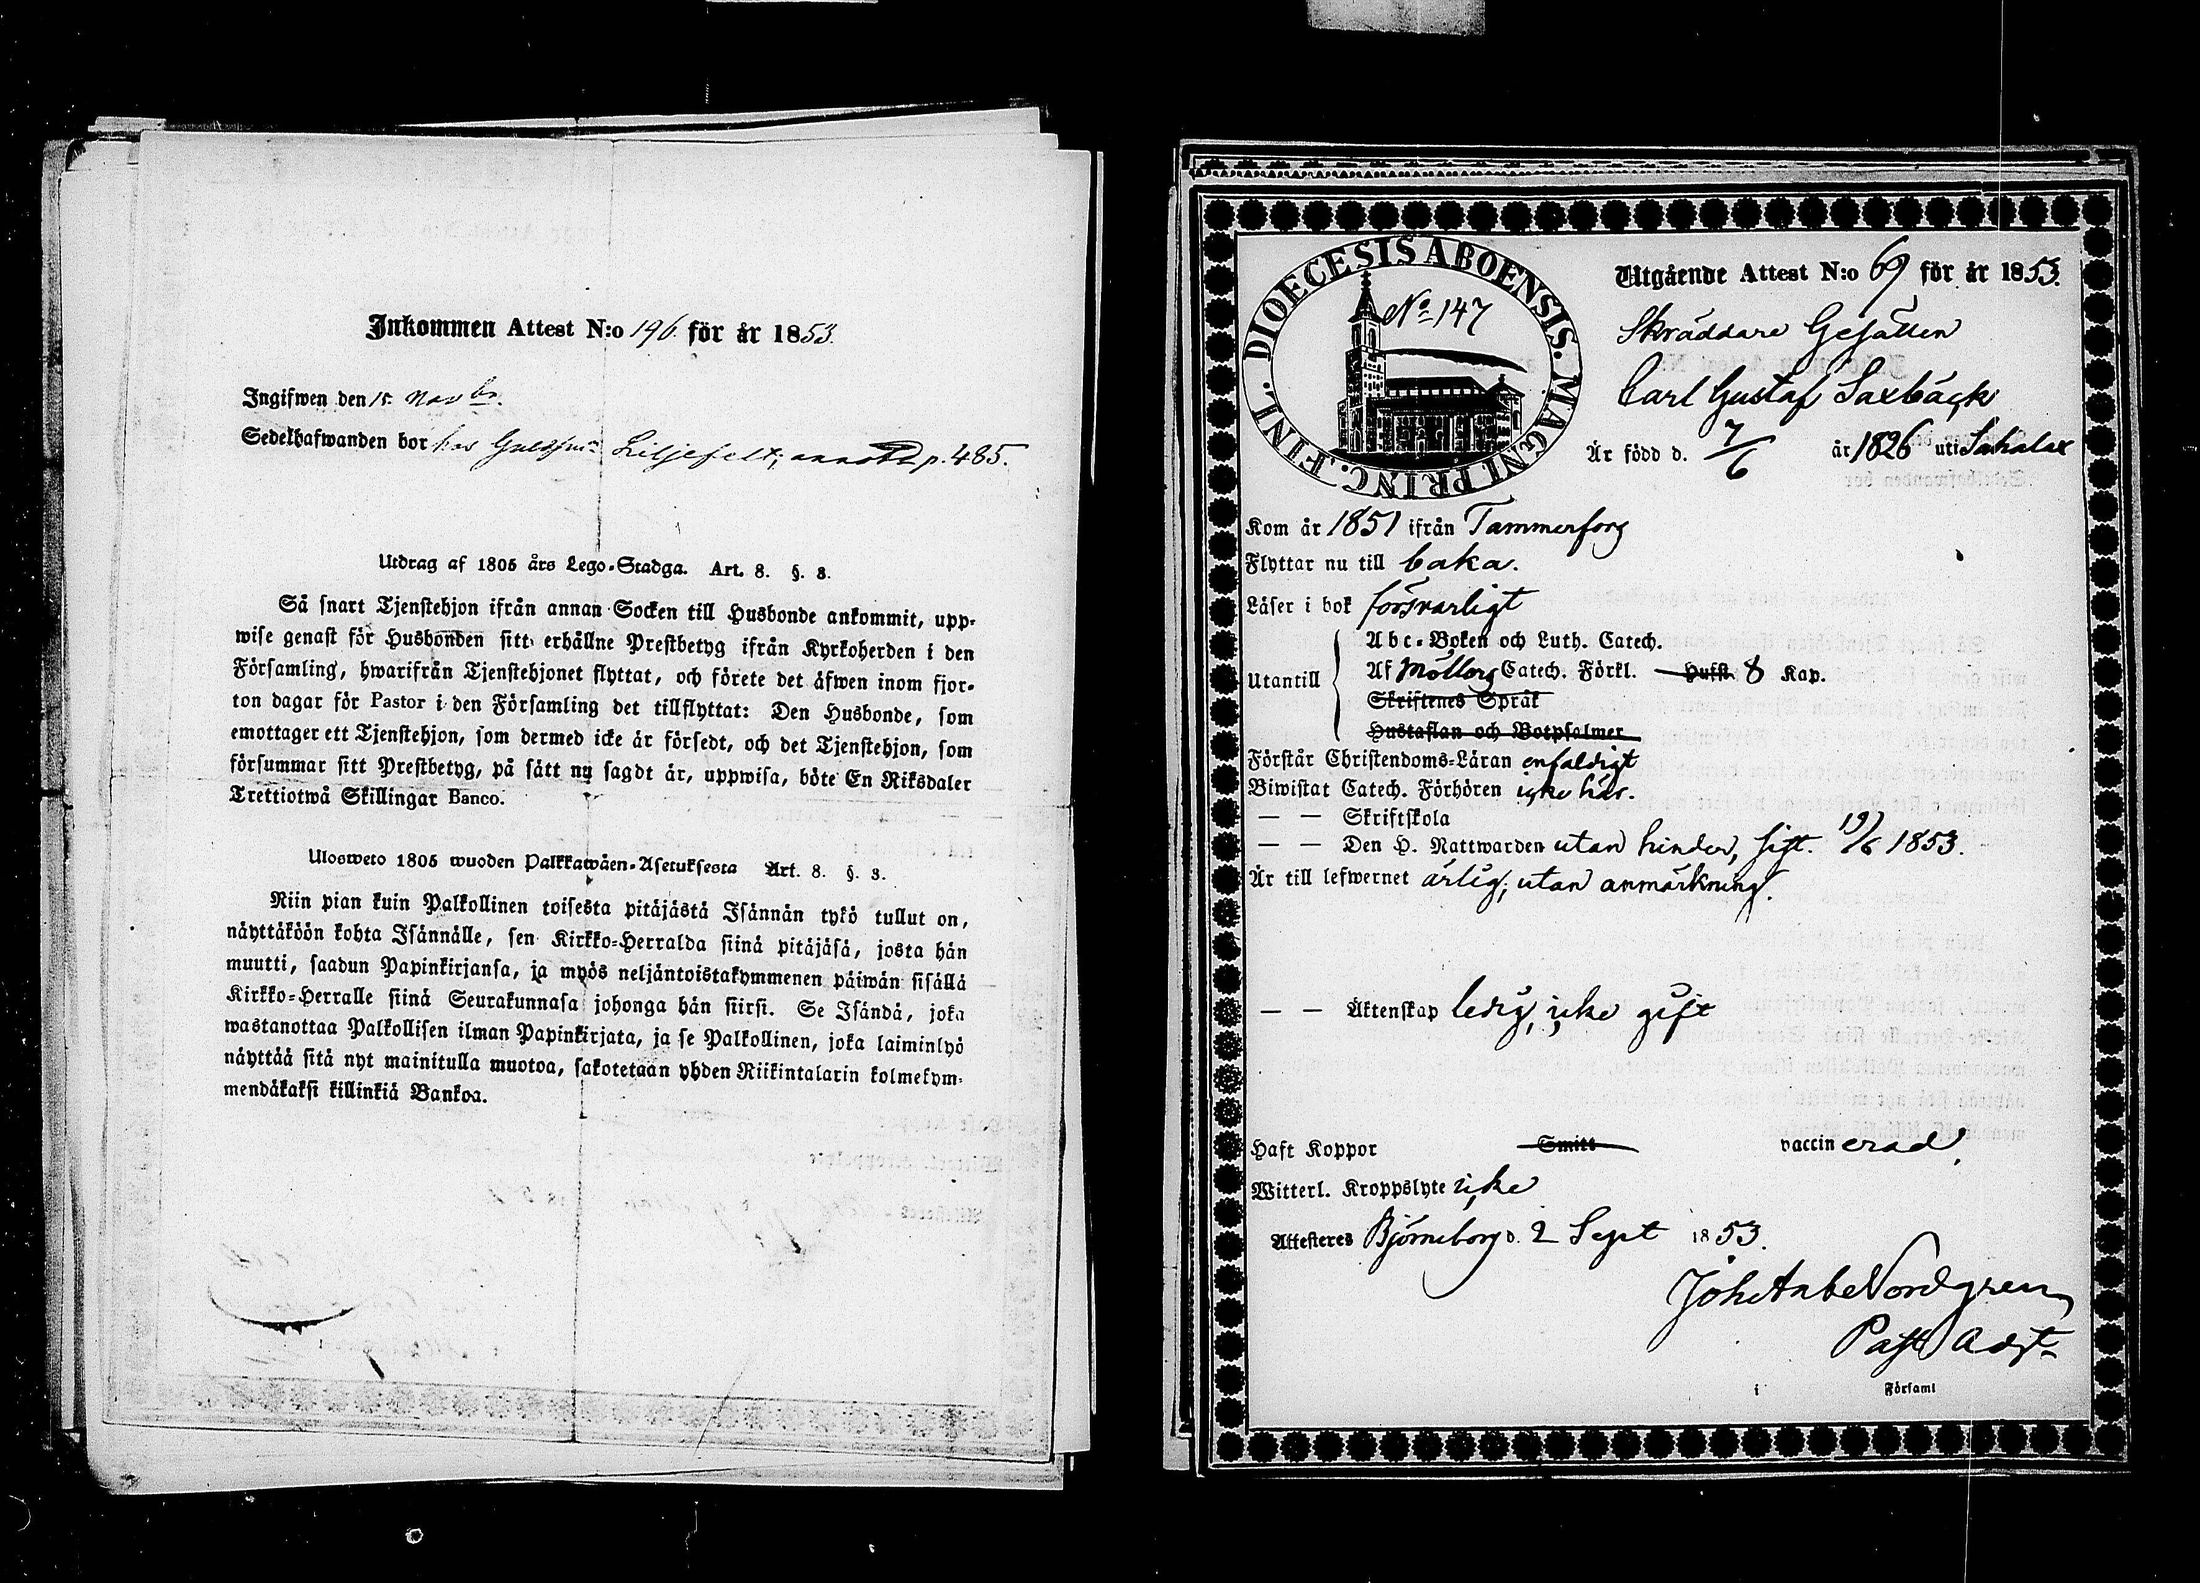 Inkommen Attest N:o 196. för år 1853.
Ingifwen den 15 Novbr.
Sedelhafwanden bor hos Guldsm: Liljefelt; annoth p. 485.
Utdrag af 1805 års Lego-Stadga. Art. 8. §. 3.
Så snart Tjenstehjon ifrån annan Socken till Husbonde ankommit, upp-
wise genast för Husbonden sitt erhållne Prestbetyg ifrån Kyrkoherden i den
Församling, hwarifrån Tjenstehjonet flyttat, och förete det äfwen inom fjor-
ton dagar för Pastor i den Församling det tillflyttat: Den Husbonde, som
emottager ett Tjenstehjon, som dermed icke är försedt, och det Tjenstehjon, som
försummar sitt Prestbetyg, på sätt nu sagdt är, uppwisa, böte En Riksdaler
Trettiotwå Skillingar Banco.
Ulosweto 1805 wuoden Palkkawäen-Asetuksesta Art. 8. §. 3.
Niin pian kuin Palkollinen toisesta pitäjästä Isännän tykö tullut on,
näyttäköön kohta Isännälle, sen Kirkko-Herralda siinä pitäjäsä, josta hän
muutti, saadun Papinkirjansa, ja myös neljäntoistakymmenen päiwän sisällä
Kirkko-Herralle siinä Seurakunnasa johonga hän siirsi. Se Isändä, joka
wastanottaa Palkollisen ilman Papinkirjata, ja se Palkollinen, joka laiminlyö
näyttää sitä nyt mainitulla muotoa, sakotetaan yhden Riikintalarin kolmekym-
mendäkaksi killinkiä Bankoa.
DIOECESIS ABOENSIS. MAGNI PRINC. FINL.
No 147
Utgående Attest N:o 69 för år 1853.
Skräddare Gesällen
Carl Gustaf Saxbäck
Är född d. 7/6 år 1826 uti Sahalax
Kom år 1851 ifrån Tammerfors
Flyttar nu till baka.
Läser i bok försvarligt
Utantill
Abc-Boken och Luth. Catech.
Af Möllers Catech. Förkl. Hufst. 8 Kap.
Skriftenes Språk
Hustaflan och Botpsalmer
Förstår Christendoms-Läran enfaldigt
Biwistat Catech. Förhören icke här.
— — Skriftskola
— — Den H. Nattwarden utan hinder, sist. 19/6 1853.
Är till lefwernet ärlig, utan anmärkning.
— — Äktenskap ledig, icke gift
Haft Koppor Smitt vaccinerad.
Witterl. Kroppslyte icke
Attesteres Björneborg d. 2 Sept 1853.
Nordgren
Past Adjt
i Församl